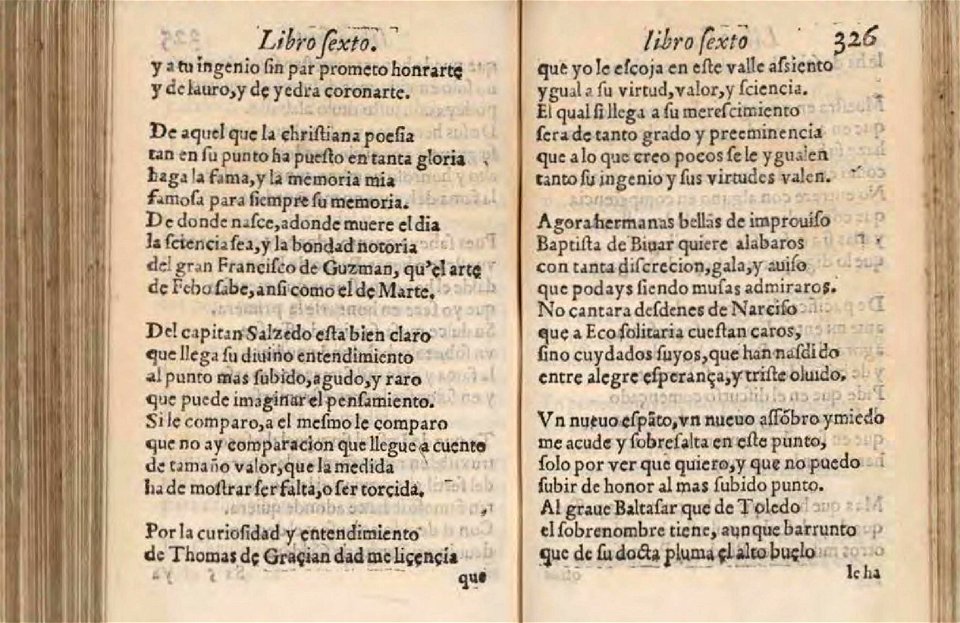 Libro ſexto.
y a tu ingenio ſin par prometo honrarte
y de lauro, y de yedra coronarte.
De aquel que la chriſtiana poeſia
tan en ſu punto ha pueſto en tanta gloria
haga la fama, y la memoria mia
famoſa para ſiempre ſu memoria.
De donde naſce, adonde muere el dia
la ſciencia ſea, y la bondad notoria
del gran Franciſco de Guzman, qu'el arte
de Febo ſabe, anſi como el de Marte.
Del capitan Salzedo eſta bien claro
que llega ſu diuino entendimiento
al punto mas ſubido, agudo, y raro
que puede imaginar el penſamiento.
Si le comparo, a el meſmo le comparo
que no ay comparacion que llegue a cuento
de tamaño valor, que la medida
ha de moſtrar ſer falta, o ſer torcida.
Por la curioſidad y entendimiento
de Thomas de Graçian dad me liçençia
que
libro ſexto 326
que yo le eſcoja en eſte valle aſsiento
ygual a ſu virtud, valor, y ſciencia.
El qual ſi llega a ſu mereſcimiento
ſera de tanto grado y preeminencia
que a lo que creo pocos ſe le ygualen
tanto ſu ingenio y ſus virtudes valen.
Agora hermanas bellas de improuiſo
Baptiſta de Biuar quiere alabaros
con tanta diſcrecion, gala, y auiſo
que podays ſiendo muſas admiraros.
No cantara deſdenes de Narciſo
que a Eco ſolitaria cueſtan caros,
ſino cuydados ſuyos, que han naſdido
entre alegre eſperança, y triſte oluido.
Vn nueuo eſpãto, vn nueuo aſſõbro y miedo
me acude y ſobreſalta en eſte punto,
ſolo por ver que quiero, y que no puedo
ſubir de honor al mas ſubido punto.
Al graue Baltaſar que de Toledo
el ſobrenombre tiene, aunque barrunto
que de ſu docta pluma el alto buelo
le ha